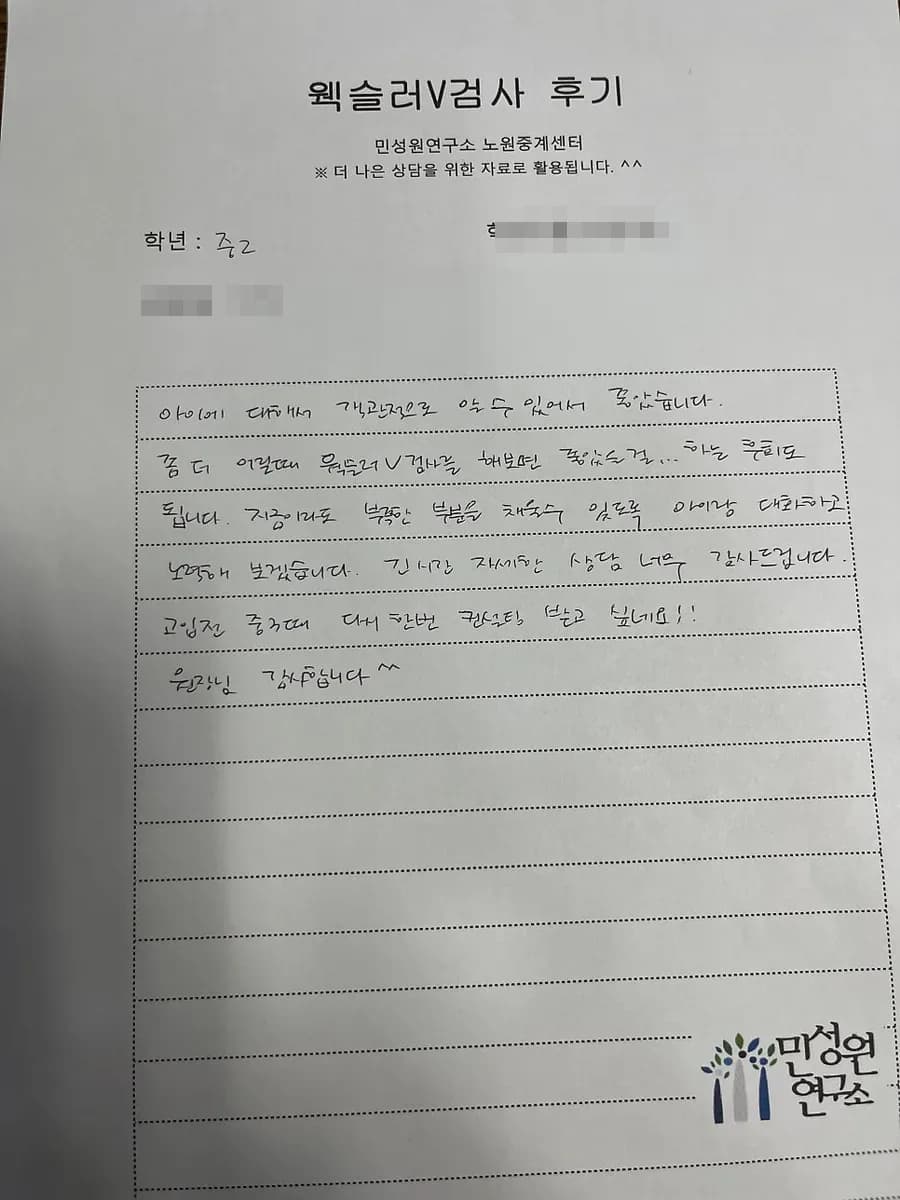 웩슬러V검사 후기
민성원연구소 노원중계센터
※ 더 나은 상담을 위한 자료로 활용됩니다. ^^
학년 : 중2
아이에 대해서 객관적으로 알 수 있어서 좋았습니다.
좀 더 어릴때 웩슬러V검사를 해보면 좋았을걸... 하는 후회도
됩니다. 지금이라도 부족한 부분을 채울수 있도록 아이랑 대화하고
노력해 보겠습니다. 긴시간 자세한 상담 너무 감사드립니다.
고입전 중3때 다시한번 컨설팅 받고 싶네요!!
원장님 감사합니다^^
민성원
연구소